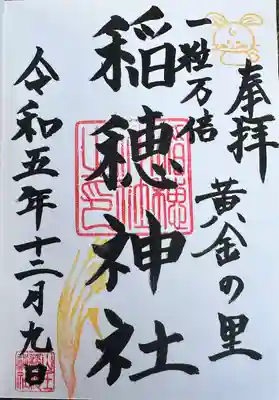 奉拝
黄金の里
一粒万倍
稲穂神社
令和五年十二月九日